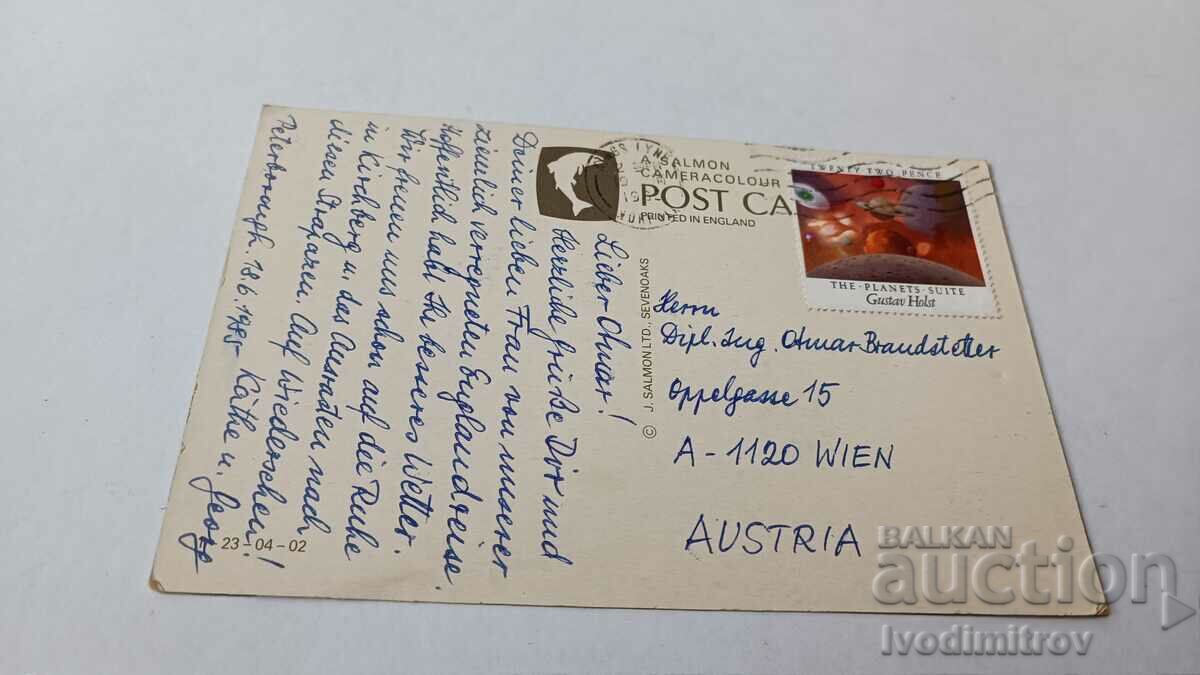 Lieber Otmar!
Herzliche Grüße Dir und
Deiner lieben Frau von unserer
ziemlich verregneten Englandreise.
Hoffentlich habt Ihr besseres Wetter.
Wir freuen uns schon auf die Ruhe
in Kirchberg u. das Ausrasten nach
diesen Strapazen. Auf Wiedersehen!
Peterborough. 18.6.1985 Käthe u. Georg
23-04-02
© J. SALMON LTD., SEVENOAKS
A SALMON
CAMERACOLOUR
POST CA
PRINTED IN ENGLAND
TWENTY TWO PENCE
THE·PLANETS·SUITE
Gustav Holst
Herrn
Dipl. Ing. Otmar Brandstetter
Oppelgasse 15
A-1120 WIEN
AUSTRIA
BALKAN
auction
Ivodimitrov